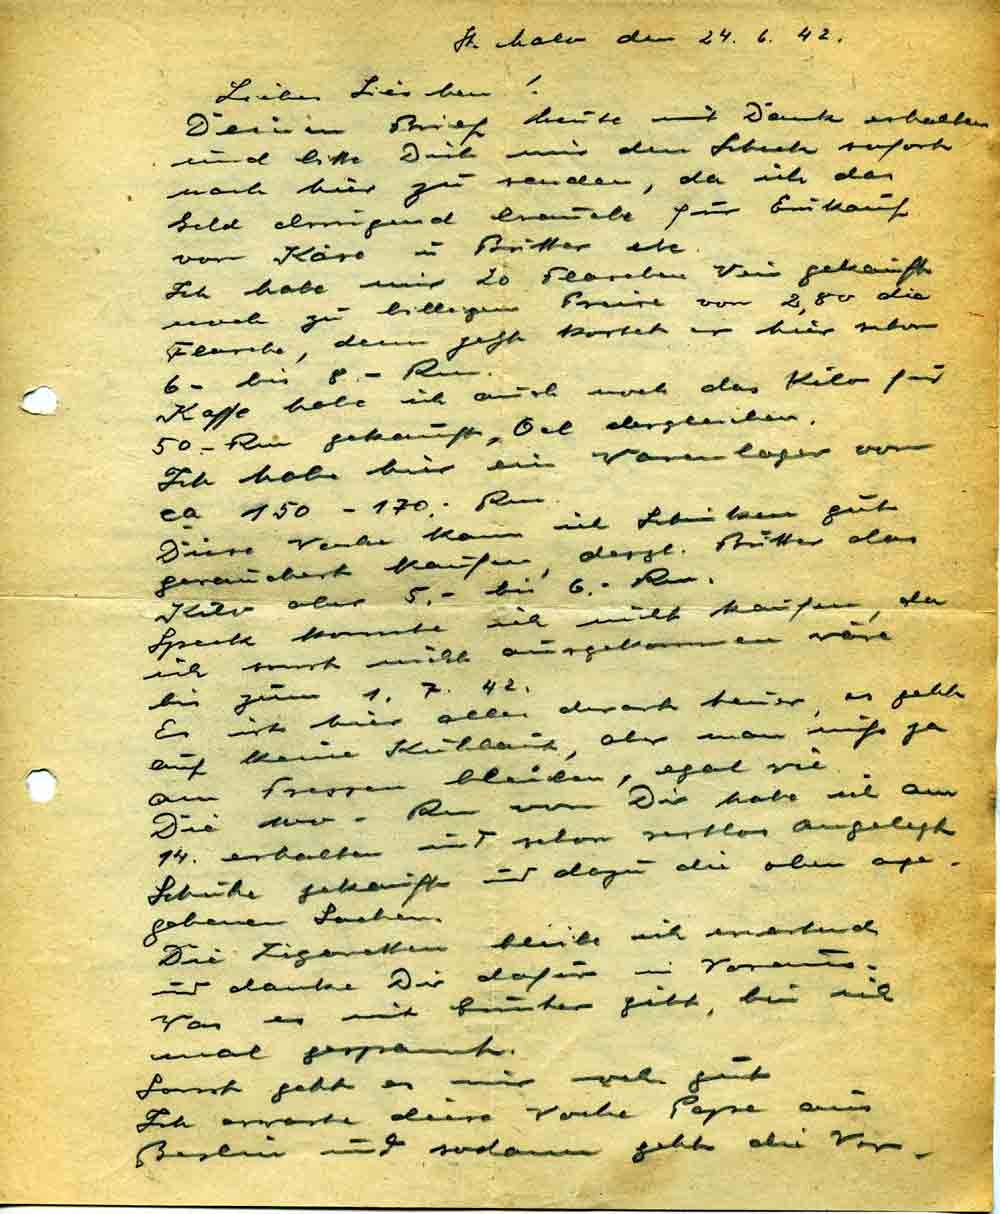 St. Malo den 24. 6. 42.
Liebes Lieschen!
Deinen Brief heute mit Dank erhalten
und bitte Dich mir den Scheck sofort
nach hier zu senden, da ich das
Geld dringend brauche für Einkauf
von Käse u Butter etc.
Ich habe mir 20 Flaschen Wein gekauft
noch zu billigem Preise von 2,80 die
Flasche, denn jetzt kostet er hier schon
6.- bis 8.- Rm.
Kaffe habe ich auch noch das Kilo für
50.- Rm gekauft, Oel dergleichen.
Ich habe hier ein Warenlager von
ca 150 - 170.- Rm.
Diese Woche kann ich Schinken gut
geräuchert kaufen, dergl. Butter das
Kilo aber 5.- bis 6.- Rm.
Speck konnte ich nicht kaufen, da
ich sonst nicht ausgekommen wäre
bis zum 1. 7. 42.
Es ist hier alles derart teuer, es geht
auf keine Kuhhaut, aber man muß ja
am Fressen bleiben, egal wie.
Die 100.- Rm von Dir habe ich am
14. erhalten und schon restlos angelegt
Schuhe gekauft und dazu die oben ange-
gebenen Sachen.
Die Zigaretten bleibe ich erwartend
und danke Dir dafür in Voraus.
Was es mit Günther gibt, bin ich
mal gespannt.
Sonst geht es mir noch gut
Ich erwarte diese Woche Pape aus
Berlin und sodann geht die Vor-